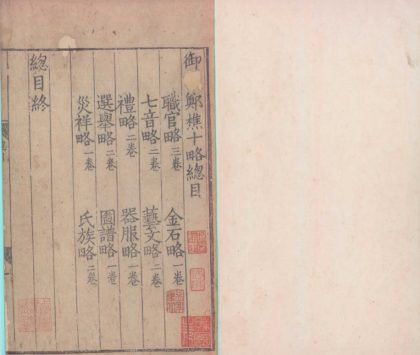 御 鄭樵十略總目
職官略三卷 金石略一卷
七音略二卷 藝文略二卷
禮略二卷 器服略一卷
選舉略二卷 圖譜略一卷
災祥略一卷 氏族略二卷
總目終